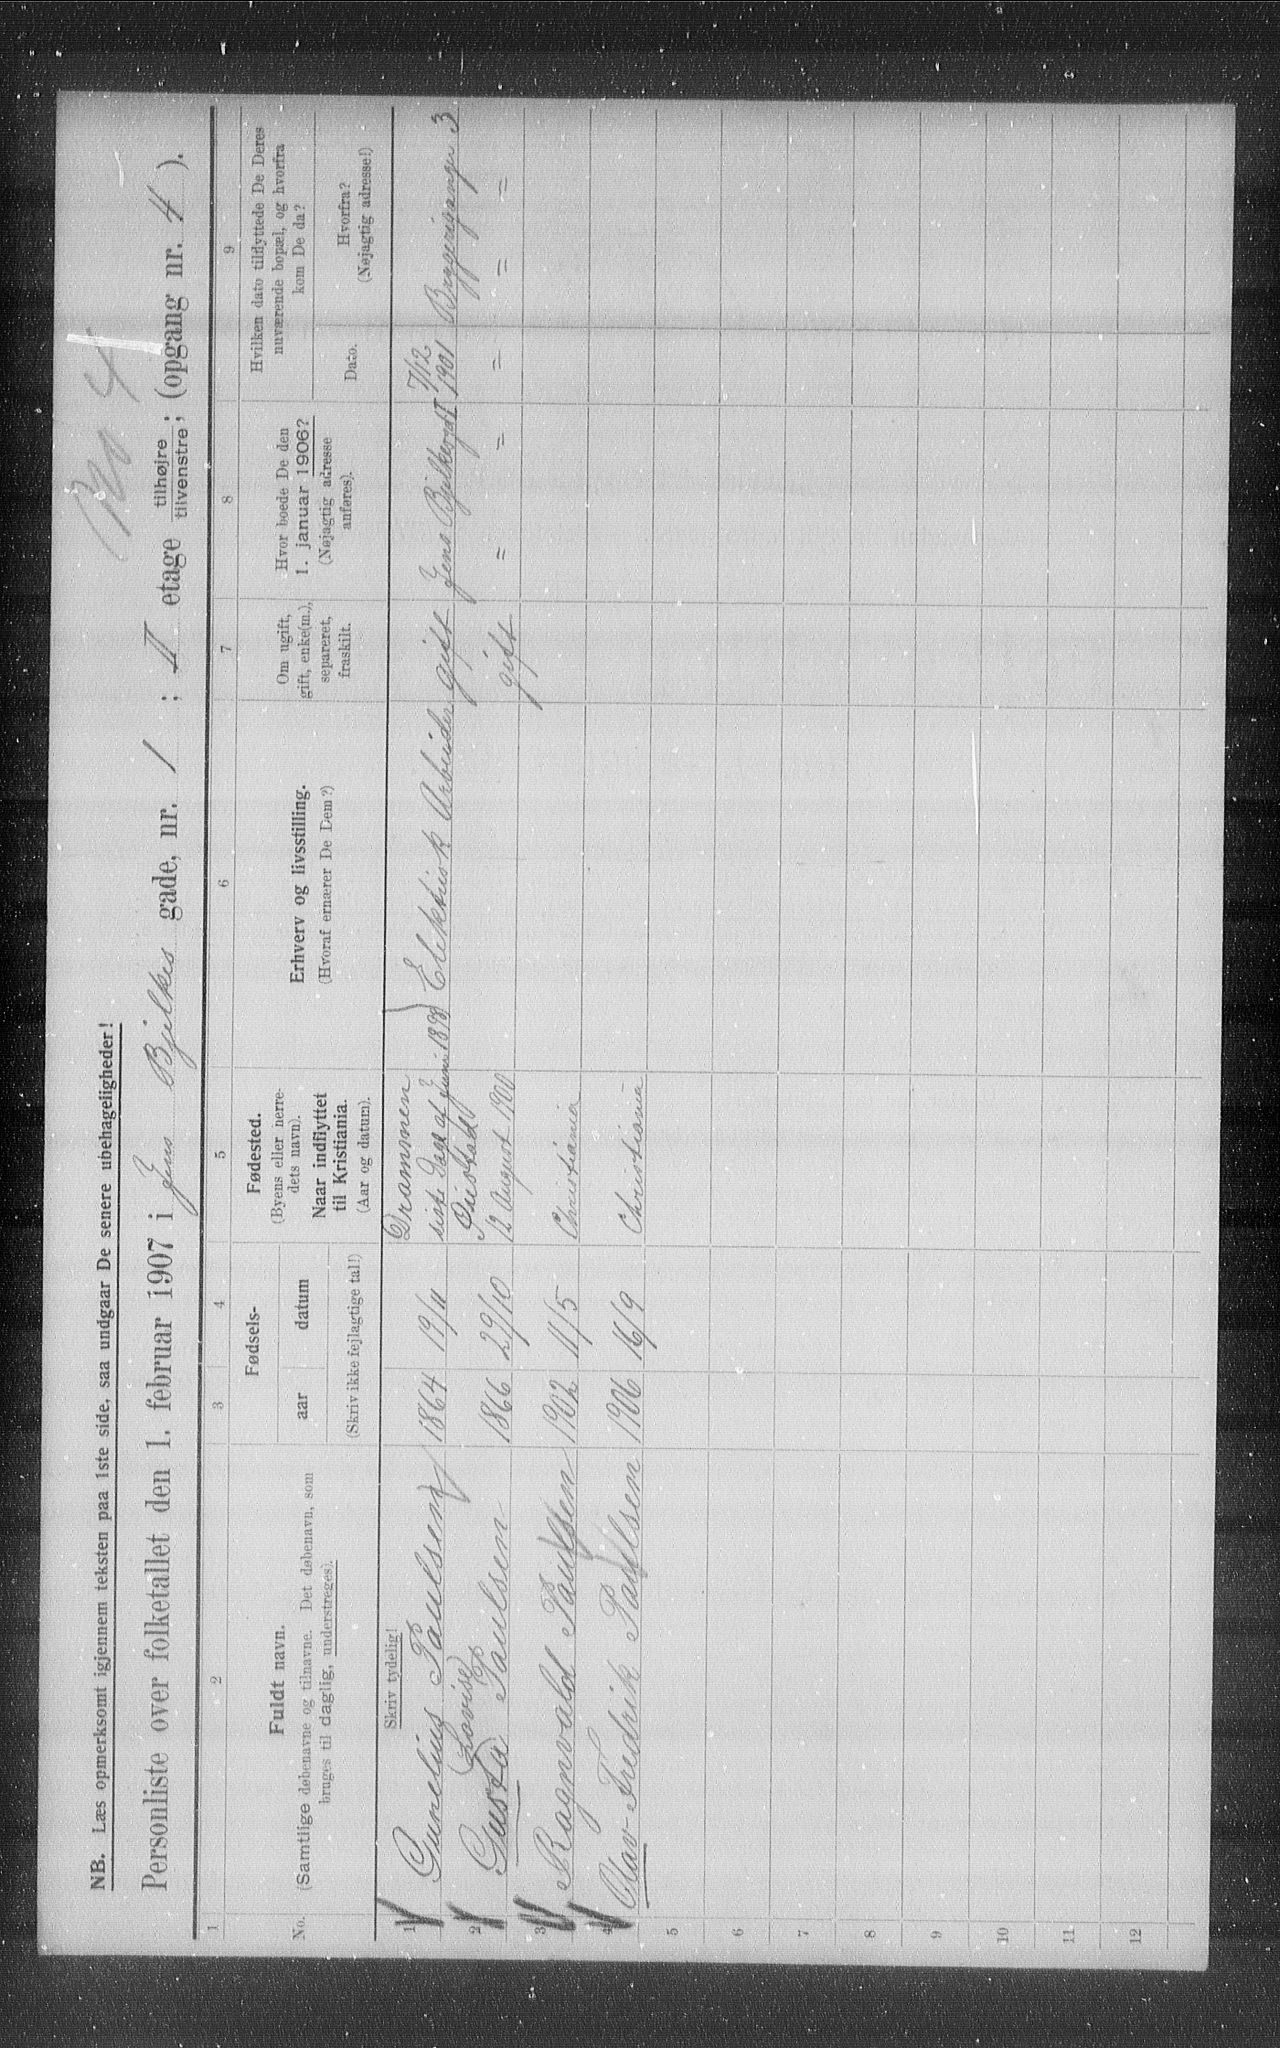 No 4
NB. Læs opmerksomt igjennem teksten paa 1ste side, saa undgaar De senere ubehageligheder!
Personliste over folketallet den 1. februar 1907 i Jens Bjelkes gade, nr. 1 ; II etage tilhøjre tilvenstre; (opgang nr. 4 ).
1 2 3 4 5 6 7 8 9
No.
Fuldt navn.
(Samtlige døbenavne og tilnavne. Det døbenavn, som
bruges til daglig, understreges).
Fødsels-
aar datum
(Skriv ikke fejlagtige tal!)
Fødested.
(Byens eller herre-
dets navn).
Naar indflyttet
til Kristiania.
(Aar og datum).
Erhverv og livsstilling.
(Hvoraf ernærer De Dem?)
Om ugift,
gift, enke(m.),
separeret,
fraskilt.
Hvor boede De den
1. januar 1906?
(Nøjagtig adresse
anføres).
Hvilken dato tilflyttede De Deres
nuværende bopæl, og hvorfra
kom De da?
Dato.
Hvorfra?
(Nøjagtig adresse!)
Skriv tydelig!
1 Gunelius Paulsen 1864 19/11 Drammen
siste Dage af Juni 1898 Elektrisk Arbeider gift Jens Bjelkesgd 1 7/12 1901 Bryggerigangen 3
2 Gusta (Lovise) Paulsen 1866 29/10
12 August 1900 gift = = = = =
3 Ragnvald Paulsen 1902 11/5 Christiania
4 Olav Fredrik Paulsen 1906 16/9 Christiania
5
6
7
8
9
10
11
12